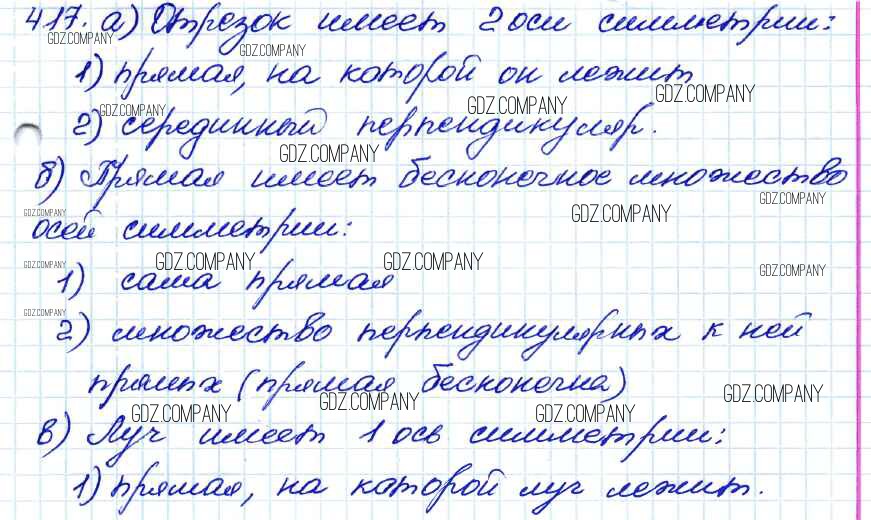 417. а) Отрезок имеет 2 оси симметрии:
GDZ.COMPANY GDZ.COMPANY GDZ.COMPANY
1) прямая, на которой он лежит
GDZ.COMPANY GDZ.COMPANY GDZ.COMPANY
2) серединный перпендикуляр.
GDZ.COMPANY
б) Прямая имеет бесконечное множество
GDZ.COMPANY GDZ.COMPANY GDZ.COMPANY
осей симметрии:
GDZ.COMPANY GDZ.COMPANY GDZ.COMPANY GDZ.COMPANY
1) сама прямая
GDZ.COMPANY
2) множество перпендикулярных к ней
прямых (прямая бесконечна)
GDZ.COMPANY GDZ.COMPANY GDZ.COMPANY GDZ.COMPANY
в) Луч имеет 1 ось симметрии:
1) прямая, на которой луч лежит.